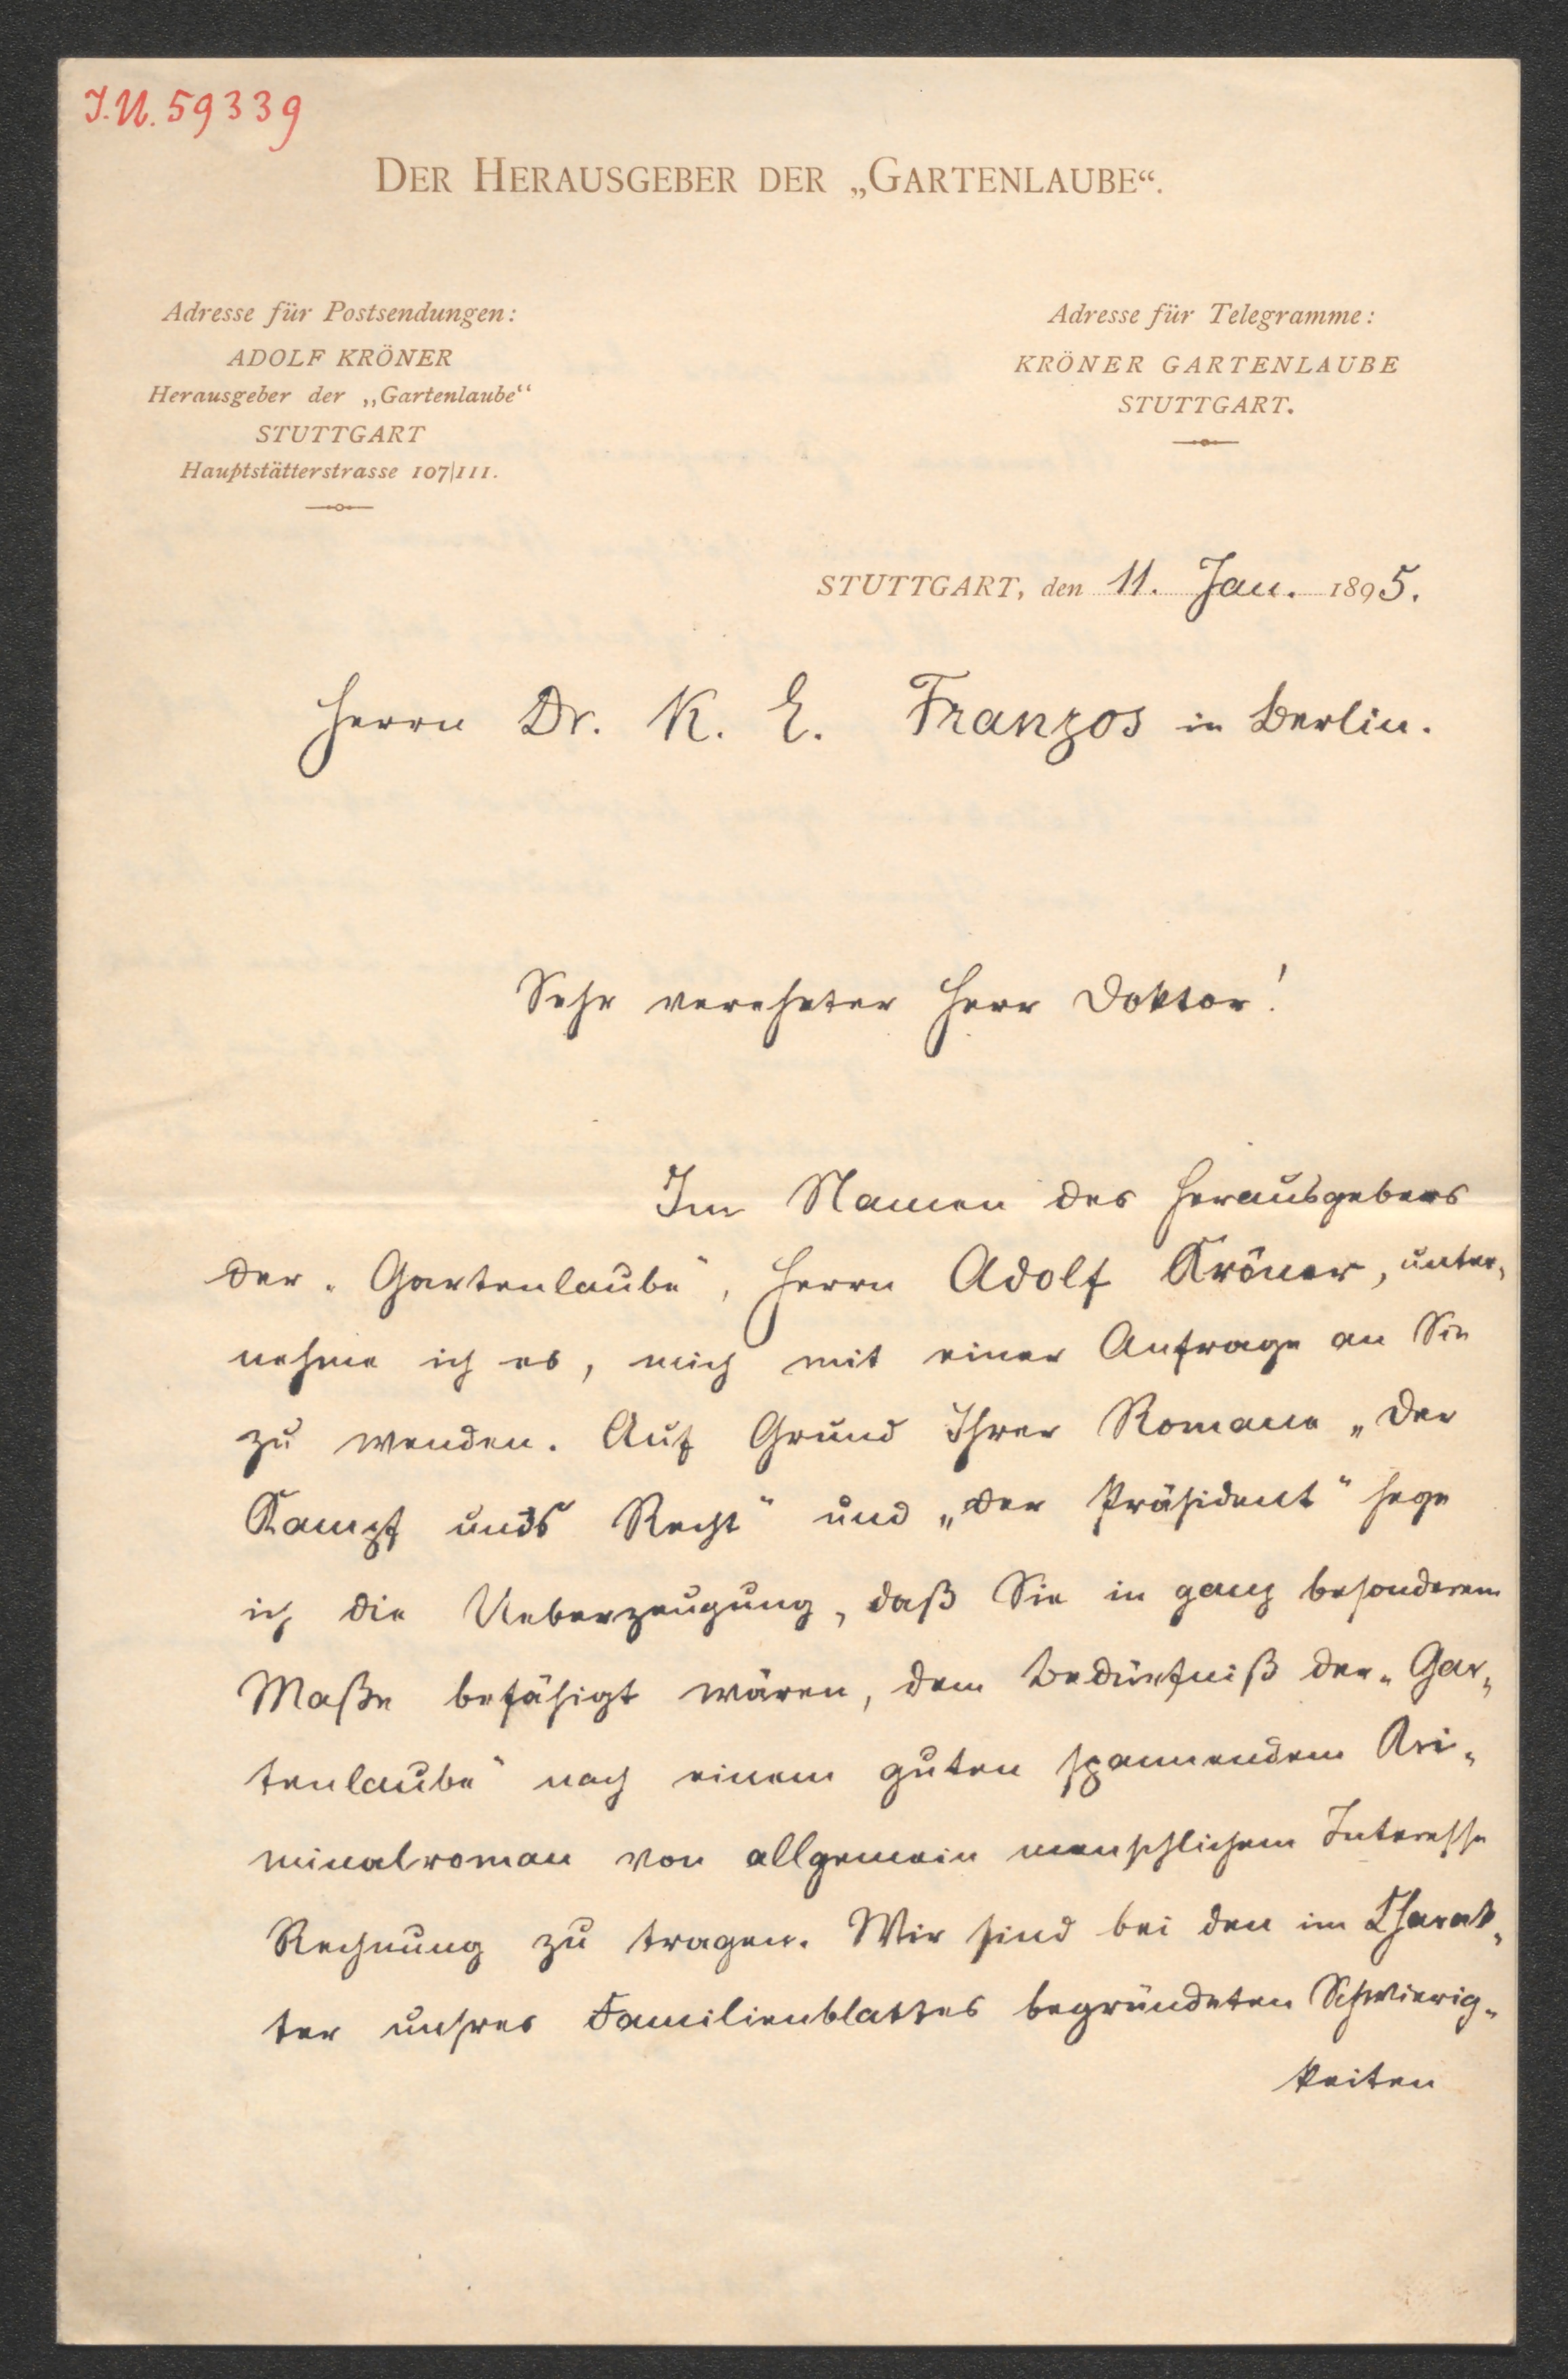 I.N. 59339
DER HERAUSGEBER DER „GARTENLAUBE“.
Adresse für Postsendungen:
ADOLF KRÖNER
Herausgeber der „Gartenlaube“
STUTTGART
Hauptstätterstrasse 107|III.
Adresse für Telegramme:
KRÖNER GARTENLAUBE
STUTTGART.
STUTTGART, den 11. Jan. 1895.
Herrn Dr. K. E. Franzos in Berlin.
Sehr verehrter Herr Doktor!
Im Namen des Herausgebers
der „Gartenlaube“, Herrn Adolf Kröner, unter-
nehme ich es, mich mit einer Anfrage an Sie
zu wenden. Auf Grund Ihrer Romane „Der
Kampf ums Recht“ und „Der Präsident“ hege
ich die Ueberzeugung, daß Sie in ganz besonderem
Maße befähigt wären, dem Bedürfniß der „Gar-
tenlaube“ nach einem guten spannendem Kri-
minalroman von allgemein menschlichem Interesse
Rechnung zu tragen. Wir sind bei den im Charak-
ter unsres Familienblattes begründeten Schwierig-
keiten